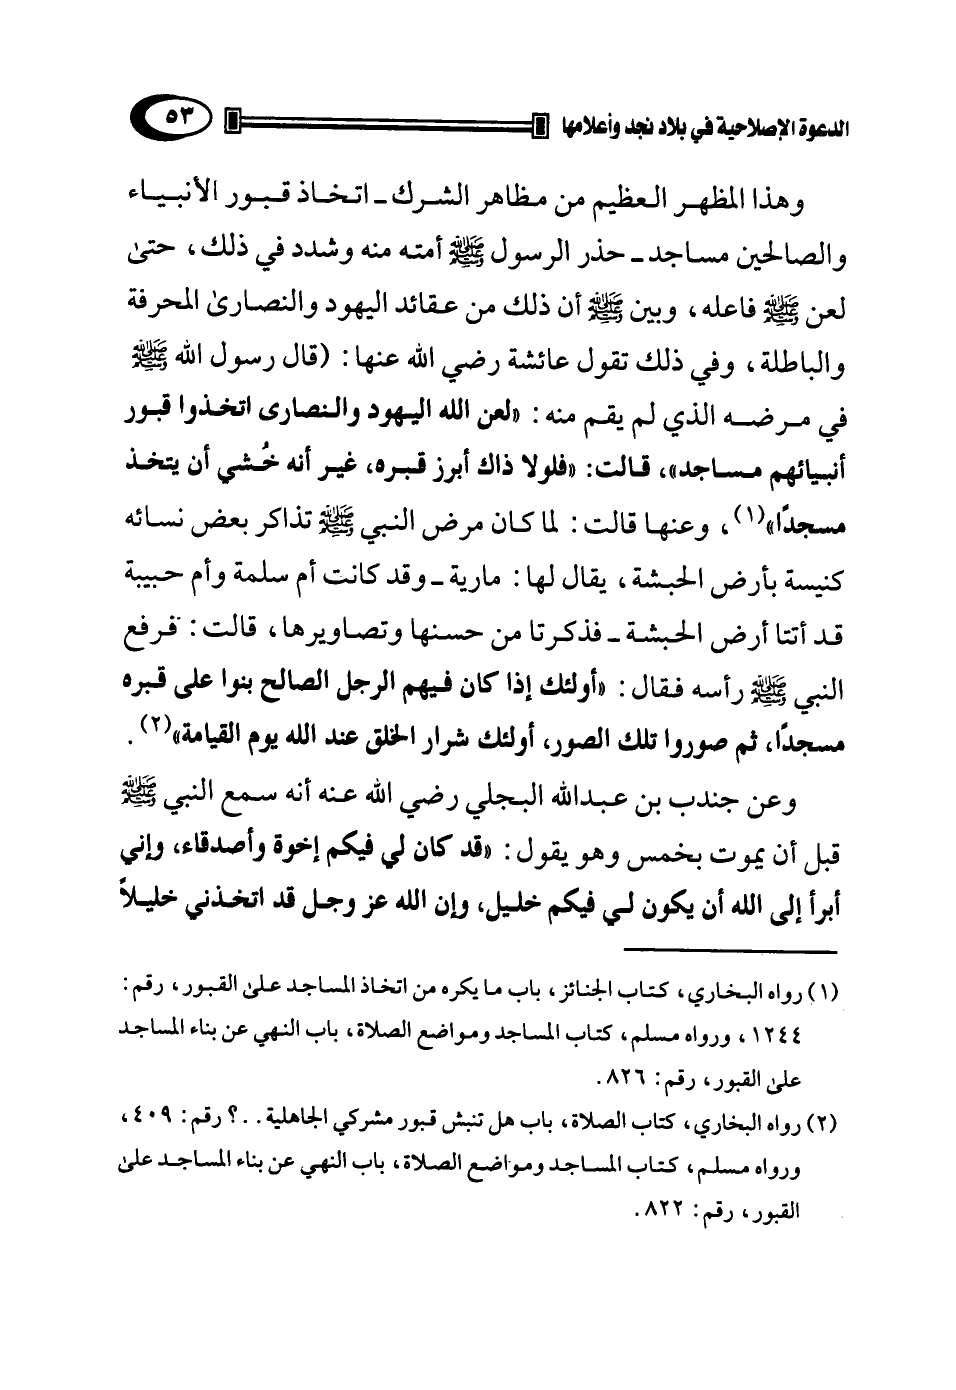 الدعوة الإصلاحية في بلاد نجد وأعلامها ٥٣
وهذا المظهر العظيم من مظاهر الشرك ـ اتخاذ قبور الأنبياء
والصالحين مساجد ـ حذر الرسول ﷺ أمته منه وشدد في ذلك، حتىٰ
لعن ﷺ فاعله، وبين ﷺ أن ذلك من عقائد اليهود والنصارىٰ المحرفة
والباطلة، وفي ذلك تقول عائشة رضي الله عنها: (قال رسول الله ﷺ
في مرضه الذي لم يقم منه: «لعن الله اليهود والنصارى اتخذوا قبور
أنبيائهم مساجد»، قالت: «فلولا ذاك أبرز قبره، غير أنه خُشي أن يتخذ
مسجدًا»(١)، وعنها قالت: لما كان مرض النبي ﷺ تذاكر بعض نسائه
كنيسة بأرض الحبشة، يقال لها: مارية ـ وقد كانت أم سلمة وأم حبيبة
قد أتتا أرض الحبشة ـ فذكرتا من حسنها وتصاويرها، قالت: فرفع
النبي ﷺ رأسه فقال: «أولئك إذا كان فيهم الرجل الصالح بنوا على قبره
مسجدًا، ثم صوروا تلك الصور، أولئك شرار الخلق عند الله يوم القيامة»(٢).
وعن جندب بن عبدالله البجلي رضي الله عنه أنه سمع النبي ﷺ
قبل أن يموت بخمس وهو يقول: «قد كان لي فيكم إخوة وأصدقاء، وإني
أبرأ إلى الله أن يكون لي فيكم خليل، وإن الله عز وجل قد اتخذني خليلاً
(١) رواه البخاري، كتاب الجنائز، باب ما يكره من اتخاذ المساجد علىٰ القبور، رقم:
١٢٤٤، ورواه مسلم، كتاب المساجد ومواضع الصلاة، باب النهي عن بناء المساجد
علىٰ القبور، رقم: ٨٢٦.
(٢) رواه البخاري، كتاب الصلاة، باب هل تنبش قبور مشركي الجاهلية..؟ رقم: ٤٠٩،
ورواه مسلم، كتاب المساجد ومواضع الصلاة، باب النهي عن بناء المساجد علىٰ
القبور، رقم: ٨٢٢.